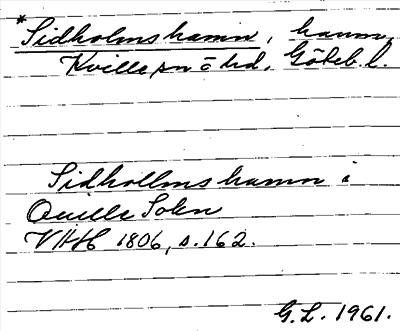 *Sidholmshamn, hamn,
Kville sn o hd, Göteb. l.
Sidhollms hamn i
Quille Sokn
VHH 1806, s. 162.
G. L. 1961.